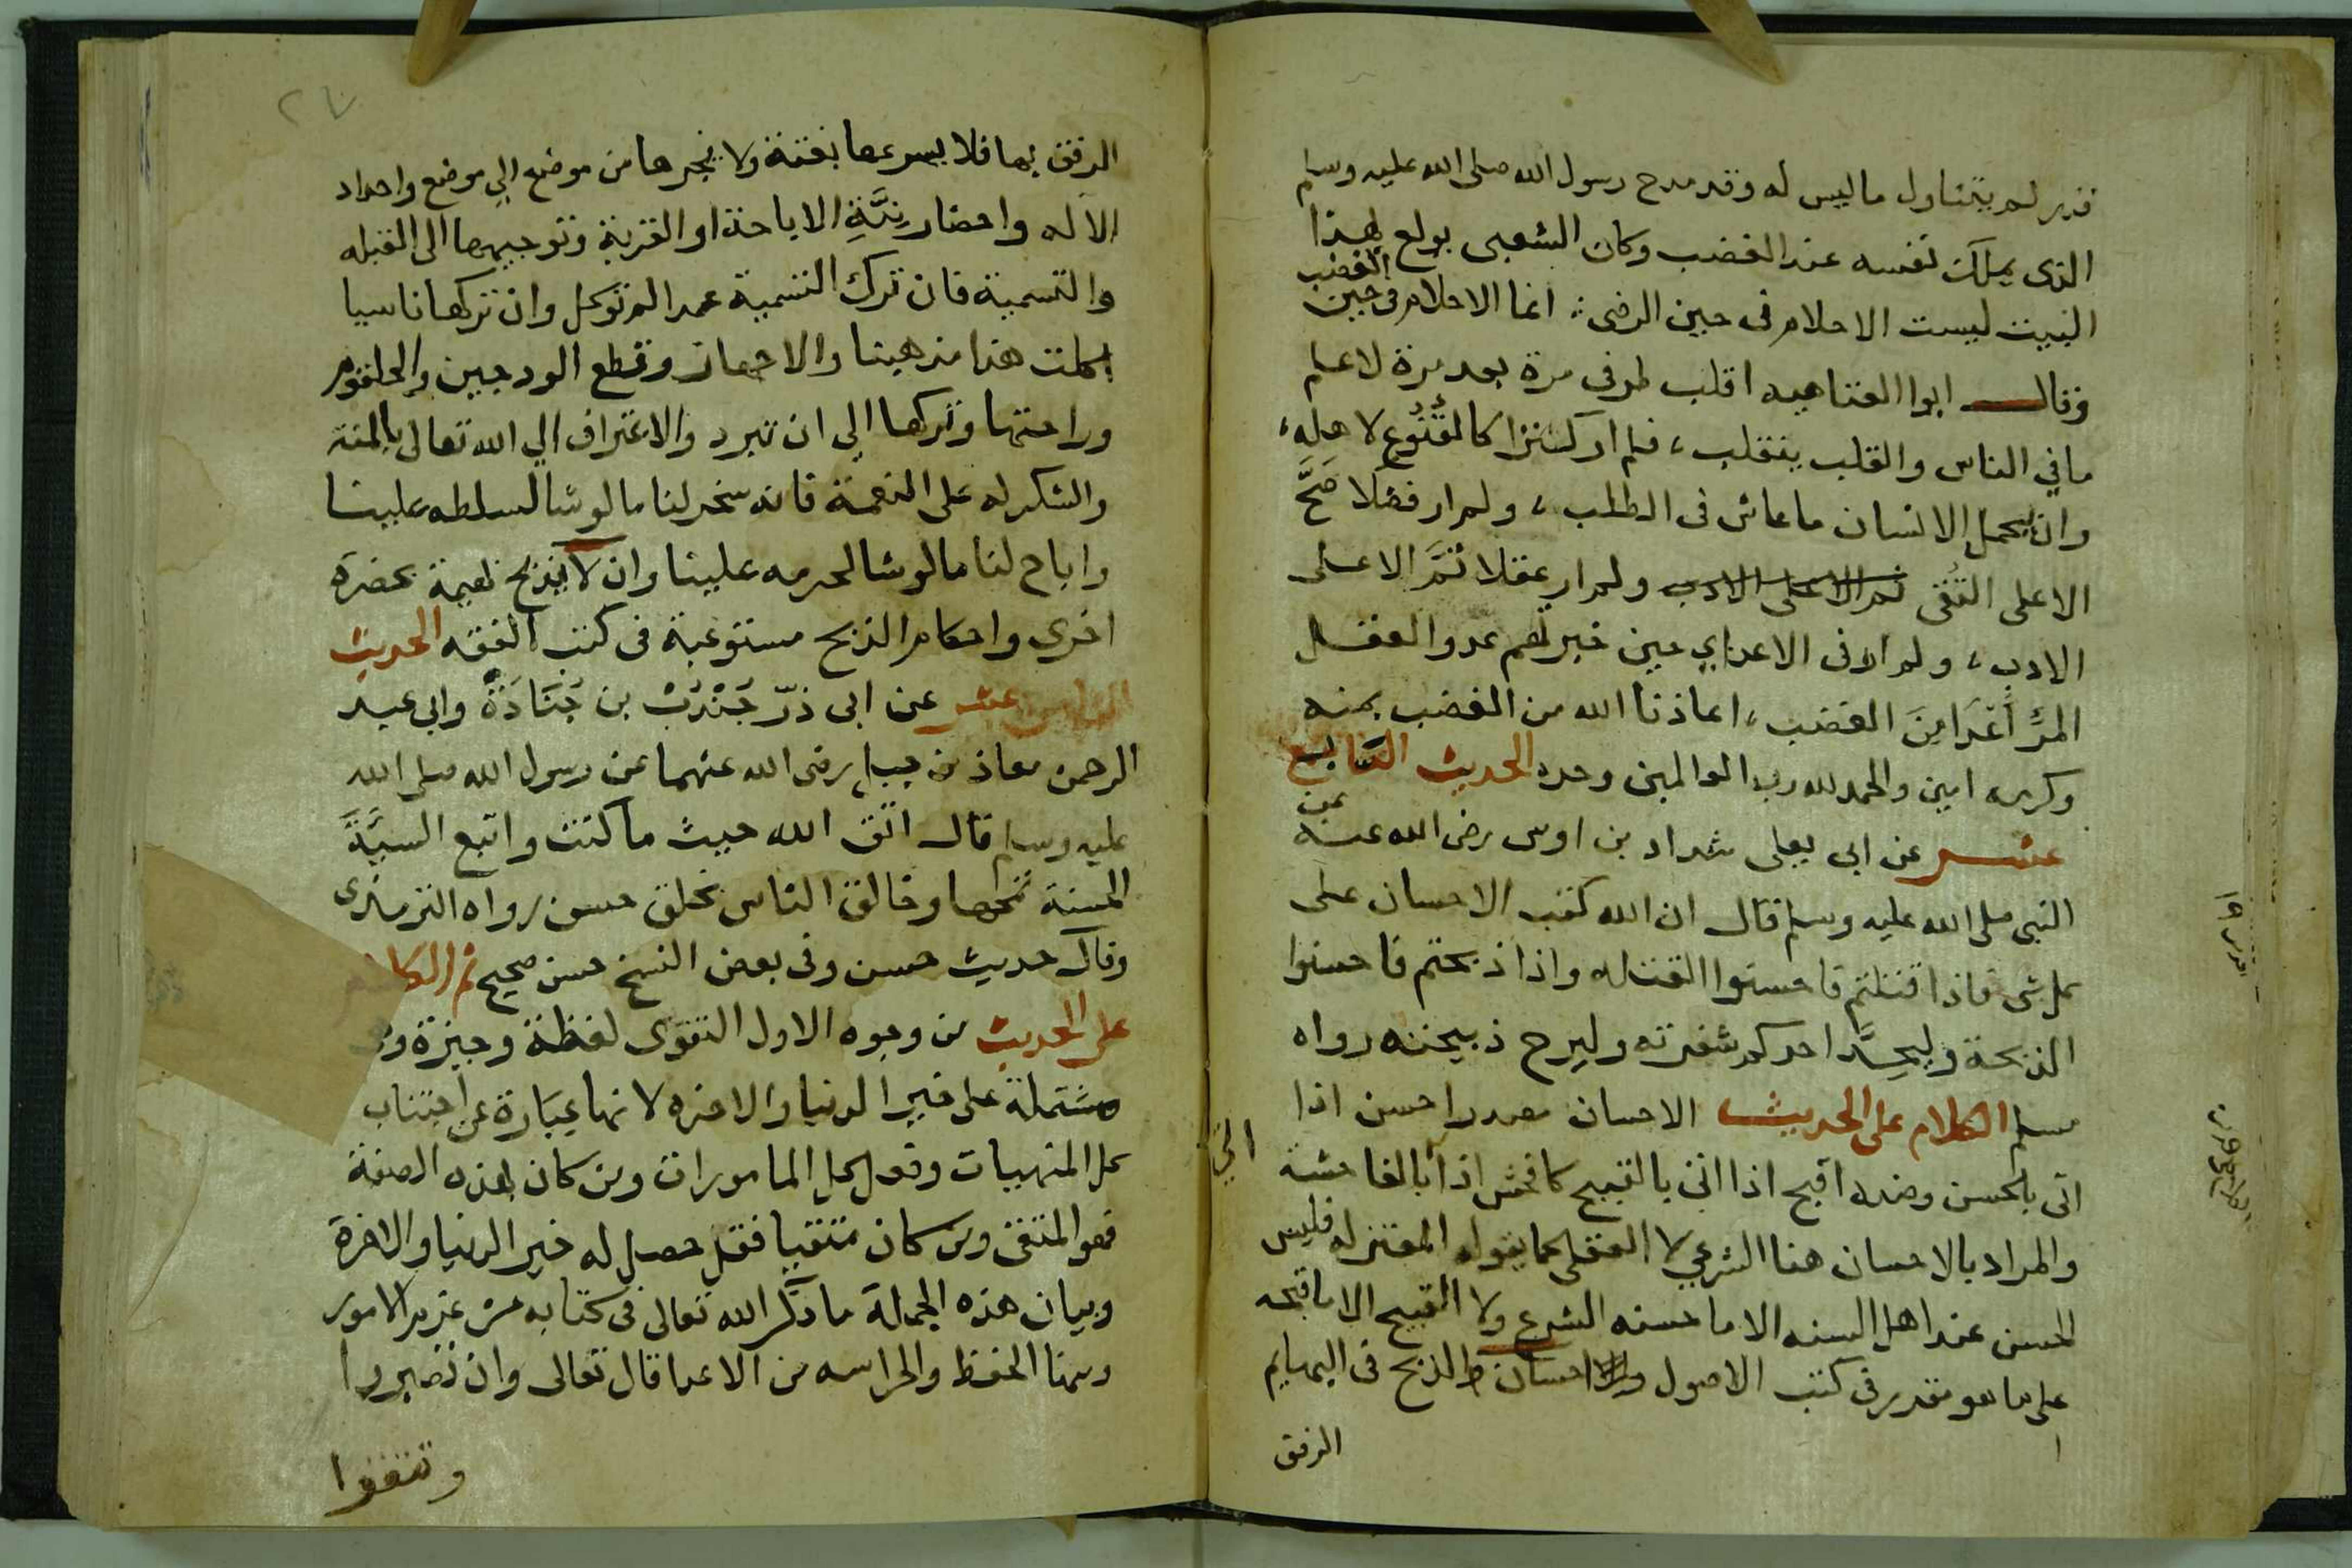 قدر لم يتناول ما ليس له وقد مدح رسول الله صلى الله عليه وسلم
الذى يملك نفسه عند الغضب وكان الشعبى يولع بهذا
البيت ليست الاحلام فى حين الرضى انما الاحلام فى حين الغضب
وقال ابوا العتاهيه اقلب طرفى مرة بعد مرة لاعلم
ما في الناس والقلب ينقلب، فلم ار كنزا كالقُنُوع لاهله،
وان يحمل الانسان ما عاش فى الطلب، ولم ار فضلا صَحَّ
الا على التقى تم الا على الادب ولم ار عقلا تمَّ الا على
الادب، ولم ار فى الاعداي حين خبرتهم عدوا لعقل
المرء اَعْدَا مِنَ الغضب، اعاذنا الله من الغضب بمنه
وكرمه امين والحمد لله رب العالمين وحده الحديث السابع
عشر عن ابى يعلى شداد بن اوس رضى الله عنه عن
النبى صلى الله عليه وسلم قال ان الله كتب الاحسان على
كل شى فاذا قتلتم فاحسنوا القتله واذا ذبحتم فاحسنوا
الذبحة وليحِدَّ احدكم شفرته وليرح ذبيحته رواه
مسلم الكلام على الحديث الاحسان مصدر احسن اذا
اتى بالحسن وضده اقبح اذا اتى بالقبيح كافحش اذا اتى بالفاحشة
والمراد بالاحسان هنا الشرعي لا العقلى كما يقوله المعتزله فليس
الحسن عند اهل السنه الا ما حسنه الشرع ولا القبيح الا ما قبحه
على ما هو مقدر فى كتب الاصول والاحسان فى الذبح فى البهايم
الرفق
٢٧
الرفق بها فلا يسرعها بغتة ولا يجرها من موضع الى موضع واحداد
الاله واحضار نِيَّةِ الاباحة او القربة وتوجيهها الى القبله
والتسمية فان ترك التسمية عمدا لم توكل وان تركها ناسيا
اكلت هذا مذهبنا والاجهاز وقطع الودجين والحلقوم
وراحتها وتركها الى ان تبرد والاعتراف الي الله تعالى بالمنة
والشكر له على النعمة فانه سخر لنا ما لو شا لسلطه علينا
واباح لنا ما لو شا لحرمه علينا وان لا يذبح بهيمة بحضرة
اخرى واحكام الذبح مستوعبة فى كتب الفقه الحديث
الثامن عشر عن ابى ذرّ جُنْدُبْ بن جُنَادَةَ وابى عبد
الرحمن معاذ بن جبل رضى الله عنهما عن رسول الله صلى الله
عليه وسلم قال اتق الله حيث ما كنت واتبع السيَّةَ
الحسنة تمحها وخالق الناس بخلق حسن رواه الترمذى
وقال حديث حسن وفى بعض النسخ حسن صحيح ثم الكلام
على الحديث من وجوه الاول التقوى لفظة وجيزة وهى
مشتملة على خير الدنيا والاخره لانها عبارة عن اجتناب
كل المنهيات وفعل كل المامورات ومن كان بهذه الصفة
فهو المتقى ومن كان متقيا فقد حصل له خير الدنيا والاخرة
وبيان هذه الجملة ما ذكر الله تعالى فى كتابه من عزيز الامور
ومنا الحفظ والحراسه من الاعدا قال تعالى وان تصبروا
وتتقوا